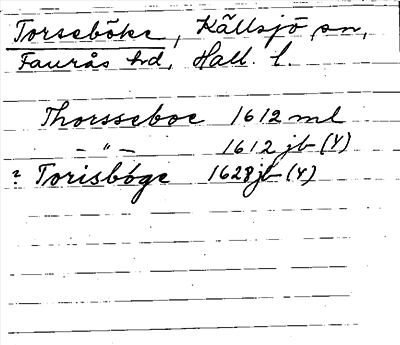 Torseböke, Källsjö sn,
Faurås hd, Hall. l.
Thorsseboe 1612 ml
— " — 1612 jb (4)
? Torisbóge 1628 jb (4)